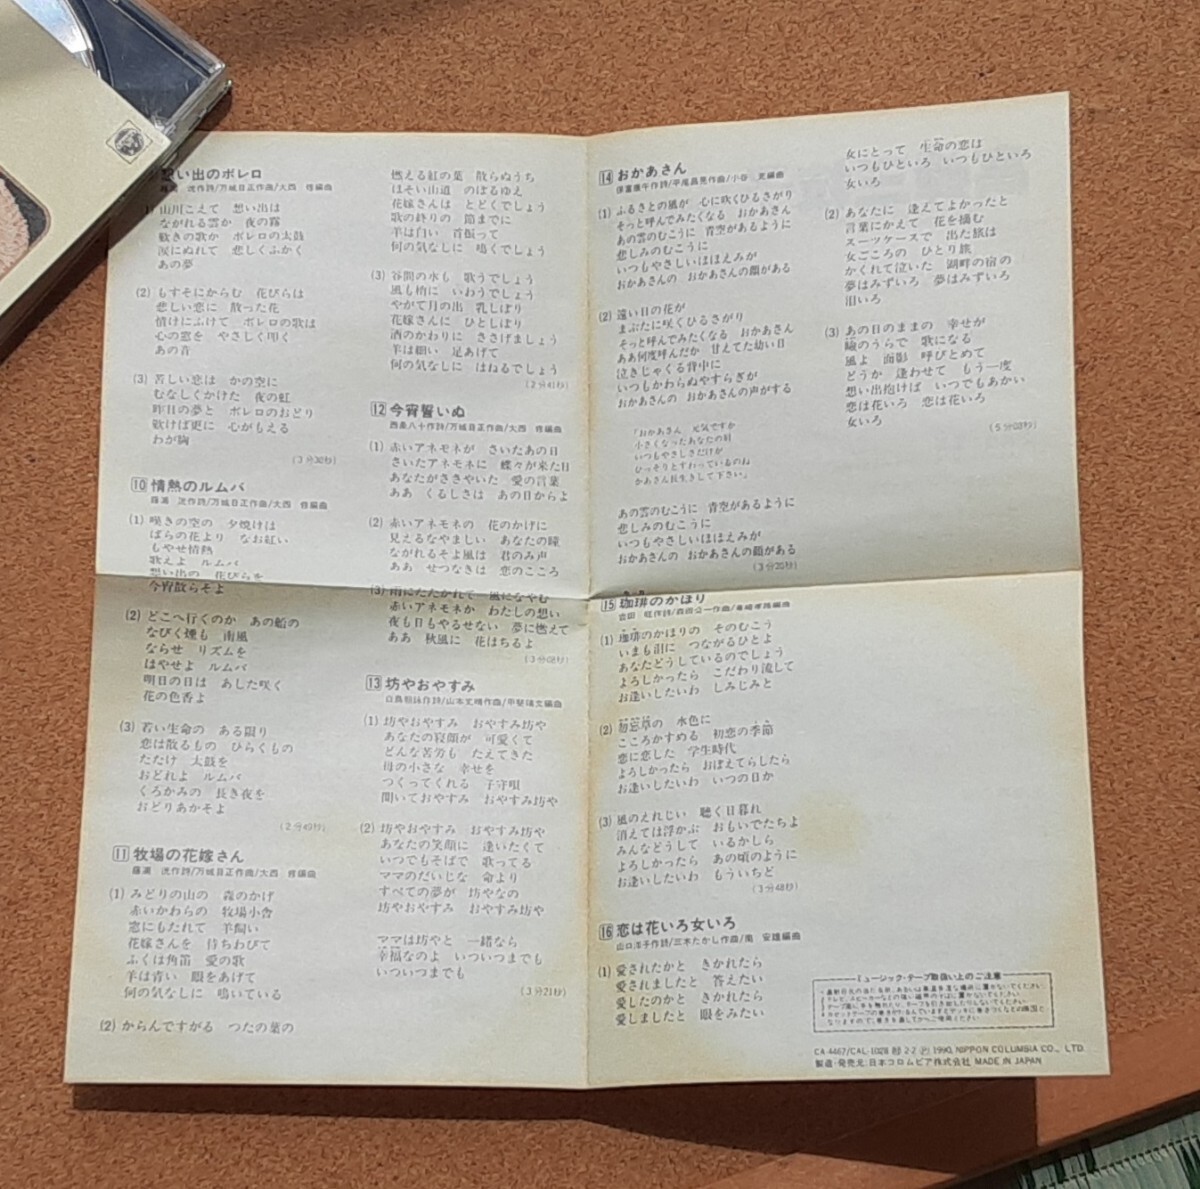 想い出のボレロ
(1) 山川こえて 想い出は
ながれる雲か 夜の霧
歎きの歌か ボレロの太鼓
涙にぬれて 悲しくふかく
あの夢
(2) もすそにからむ 花びらは
悲しい恋に 散った花
情けにふけて ボレロの歌は
心の窓を やさしく叩く
あの音
(3) 苦しい恋は かの空に
むなしくかけた 夜の虹
昨日の夢と ボレロのおどり
歌けば更に 心がもえる
わが胸
(3分30秒)
10 情熱のルムバ
藤浦 洸作詩/万城目正作曲/大西 修編曲
(1) 嘆きの空の 夕焼けは
ばらの花より なお紅い
もやせ情熱
歌えよ ルムバ
想い出の 花びらを
今宵散らそよ
(2) どこへ行くのか あの船の
なびく煙も 南風
ならせ リズムを
はやせよ ルムバ
明日の日は あした咲く
花の色香よ
(3) 若い生命の ある限り
恋は散るもの ひらくもの
たたけ 太鼓を
おどれよ ルムバ
くろかみの 長き夜を
おどりあかそよ
(2分49秒)
11 牧場の花嫁さん
藤浦 洸作詩/万城目正作曲/大西 修編曲
(1) みどりの山の 森のかげ
赤いかわらの 牧場小舎
窓にもたれて 羊飼い
花嫁さんを 待ちわびて
ふくは角笛 愛の歌
羊は青い 眼をあげて
何の気なしに 鳴いている
(2) からんですがる つたの葉の
燃える紅の葉 散らぬうち
ほそい山道 のぼるゆえ
花嫁さんは とどくでしょう
歌の終りの 節までに
羊は白い 首振って
何の気なしに 鳴くでしょう
(3) 谷間の水も 歌うでしょう
風も梢に いわうでしょう
やがて月の出 乳しぼり
花嫁さんに ひとしぼり
酒のかわりに ささげましょう
羊は細い 足あげて
何の気なしに はねるでしょう
(2分41秒)
12 今宵誓いぬ
西条八十作詩/万城目正作曲/大西 修編曲
(1) 赤いアネモネが さいたあの日
さいたアネモネに 蝶々が来た日
あなたがささやいた 愛の言葉
ああ くるしさは あの日からよ
(2) 赤いアネモネの 花のかげに
見えるなやましい あなたの瞳
ながれるそよ風は 君のみ声
ああ せつなきは 恋のこころ
(3) 雨にたたかれて 風になやむ
赤いアネモネか わたしの想い
夜も日もやるせない 夢に燃えて
ああ 秋風に 花はちるよ
(3分08秒)
13 坊やおやすみ
(1) 坊やおやすみ おやすみ坊や
あなたの寝顔が 可愛くて
どんな苦労も たえてきた
母の小さな 幸せを
つくってくれる 子守唄
聞いておやすみ おやすみ坊や
(2) 坊やおやすみ おやすみ坊や
あなたの笑顔に 逢いたくて
いつでもそばで 歌ってる
ママのだいじな 命より
すべての夢が 坊やなの
坊やおやすみ おやすみ坊や
ママは坊やと 一緒なら
幸福なのよ いついつまでも
いついつまでも
(3分21秒)
14 おかあさん
(1) ふるさとの風が 心に吹くひるさがり
そっと呼んでみたくなる おかあさん
あの雲のむこうに 青空があるように
悲しみのむこうに
いつもやさしいほほえみが
おかあさんの おかあさんの顔がある
(2) 遠い日の花が
まぶたに咲くひるさがり
そっと呼んでみたくなる おかあさん
ああ何度呼んだか 甘えてた幼い日
泣きじゃくる背中に
いつもかわらぬやすらぎが
おかあさんの おかあさんの声がする
「おかあさん 元気ですか
小さくなったあなたの肩
いつもやさしさだけが
ひっそりとすわっているのね
かあさん長生きして下さい」
あの雲のむこうに 青空があるように
悲しみのむこうに
いつもやさしいほほえみが
おかあさんの おかあさんの顔がある
(3分20秒)
15 珈琲のかほり
(1) 珈琲のかほりの そのむこう
いまも泪に つながるひとよ
あなたどうしているのでしょう
よろしかったら こだわり流して
お逢いしたいわ しみじみと
(2) 勿忘草の 水色に
こころかすめる 初恋の季節
恋に恋した 学生時代
よろしかったら おぼえてらしたら
お逢いしたいわ いつの日か
(3) 風のえれじい 聴く日暮れ
消えては浮かぶ おもいでたちよ
みんなどうして いるかしら
よろしかったら あの頃のように
お逢いしたいわ もういちど
(3分48秒)
16 恋は花いろ女いろ
山口洋子作詩/三木たかし作曲/南 安雄編曲
(1) 愛されたかと きかれたら
愛されましたと 答えたい
愛したのかと きかれたら
愛しましたと 眼をみたい
女にとって 生命の恋は
いつもひといろ いつもひといろ
女いろ
(2) あなたに 逢えてよかったと
言葉にかえて 花を摘む
スーツケースで 出た旅は
女ごころの ひとり旅
かくれて泣いた 湖畔の宿の
夢はみずいろ 夢はみずいろ
泪いろ
(3) あの日のままの 幸せが
瞼のうらで 歌になる
風よ 面影 呼びとめて
どうか 逢わせて もう一度
想い出抱けば いつでもあかい
恋は花いろ 恋は花いろ
女いろ
(5分03秒)
ミュージック・テープ取扱い上のご注意
CA-4467/CAL-1028 2-2 Ⓟ 1990, NIPPON COLUMBIA CO., LTD.
製造・発売元:日本コロムビア株式会社 MADE IN JAPAN